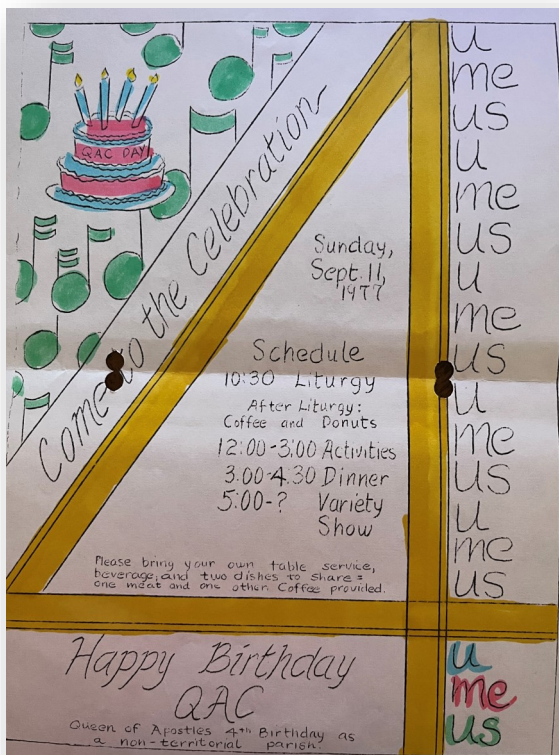 QAC DAY
Come to the Celebration
Sunday,
Sept. 11,
1977
Schedule
10:30 Liturgy
After Liturgy:
Coffee and Donuts
12:00-3:00 Activities
3:00-4:30 Dinner
5:00-? Variety
Show
Please bring your own table service,
beverage, and two dishes to share=
one meat and one other. Coffee provided.
Happy Birthday
QAC
Queen of Apostles 4th Birthday as
a non-territorial parish.
u
me
us
u
me
us
u
me
us
u
me
us
u
me
us
u
me
us